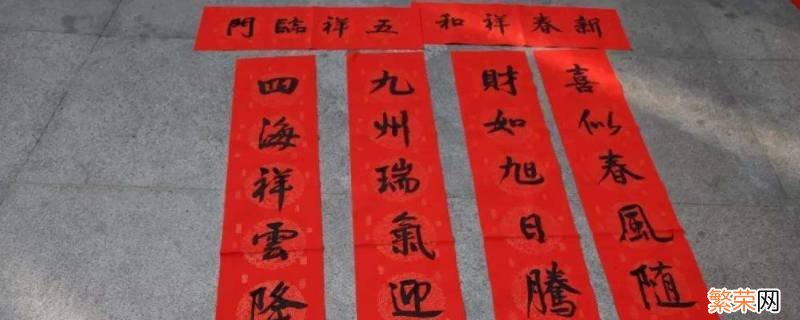 新春祥和
五祥臨門
喜似春風随
財如旭日騰
九州瑞氣迎
四海祥雲降
繁荣网